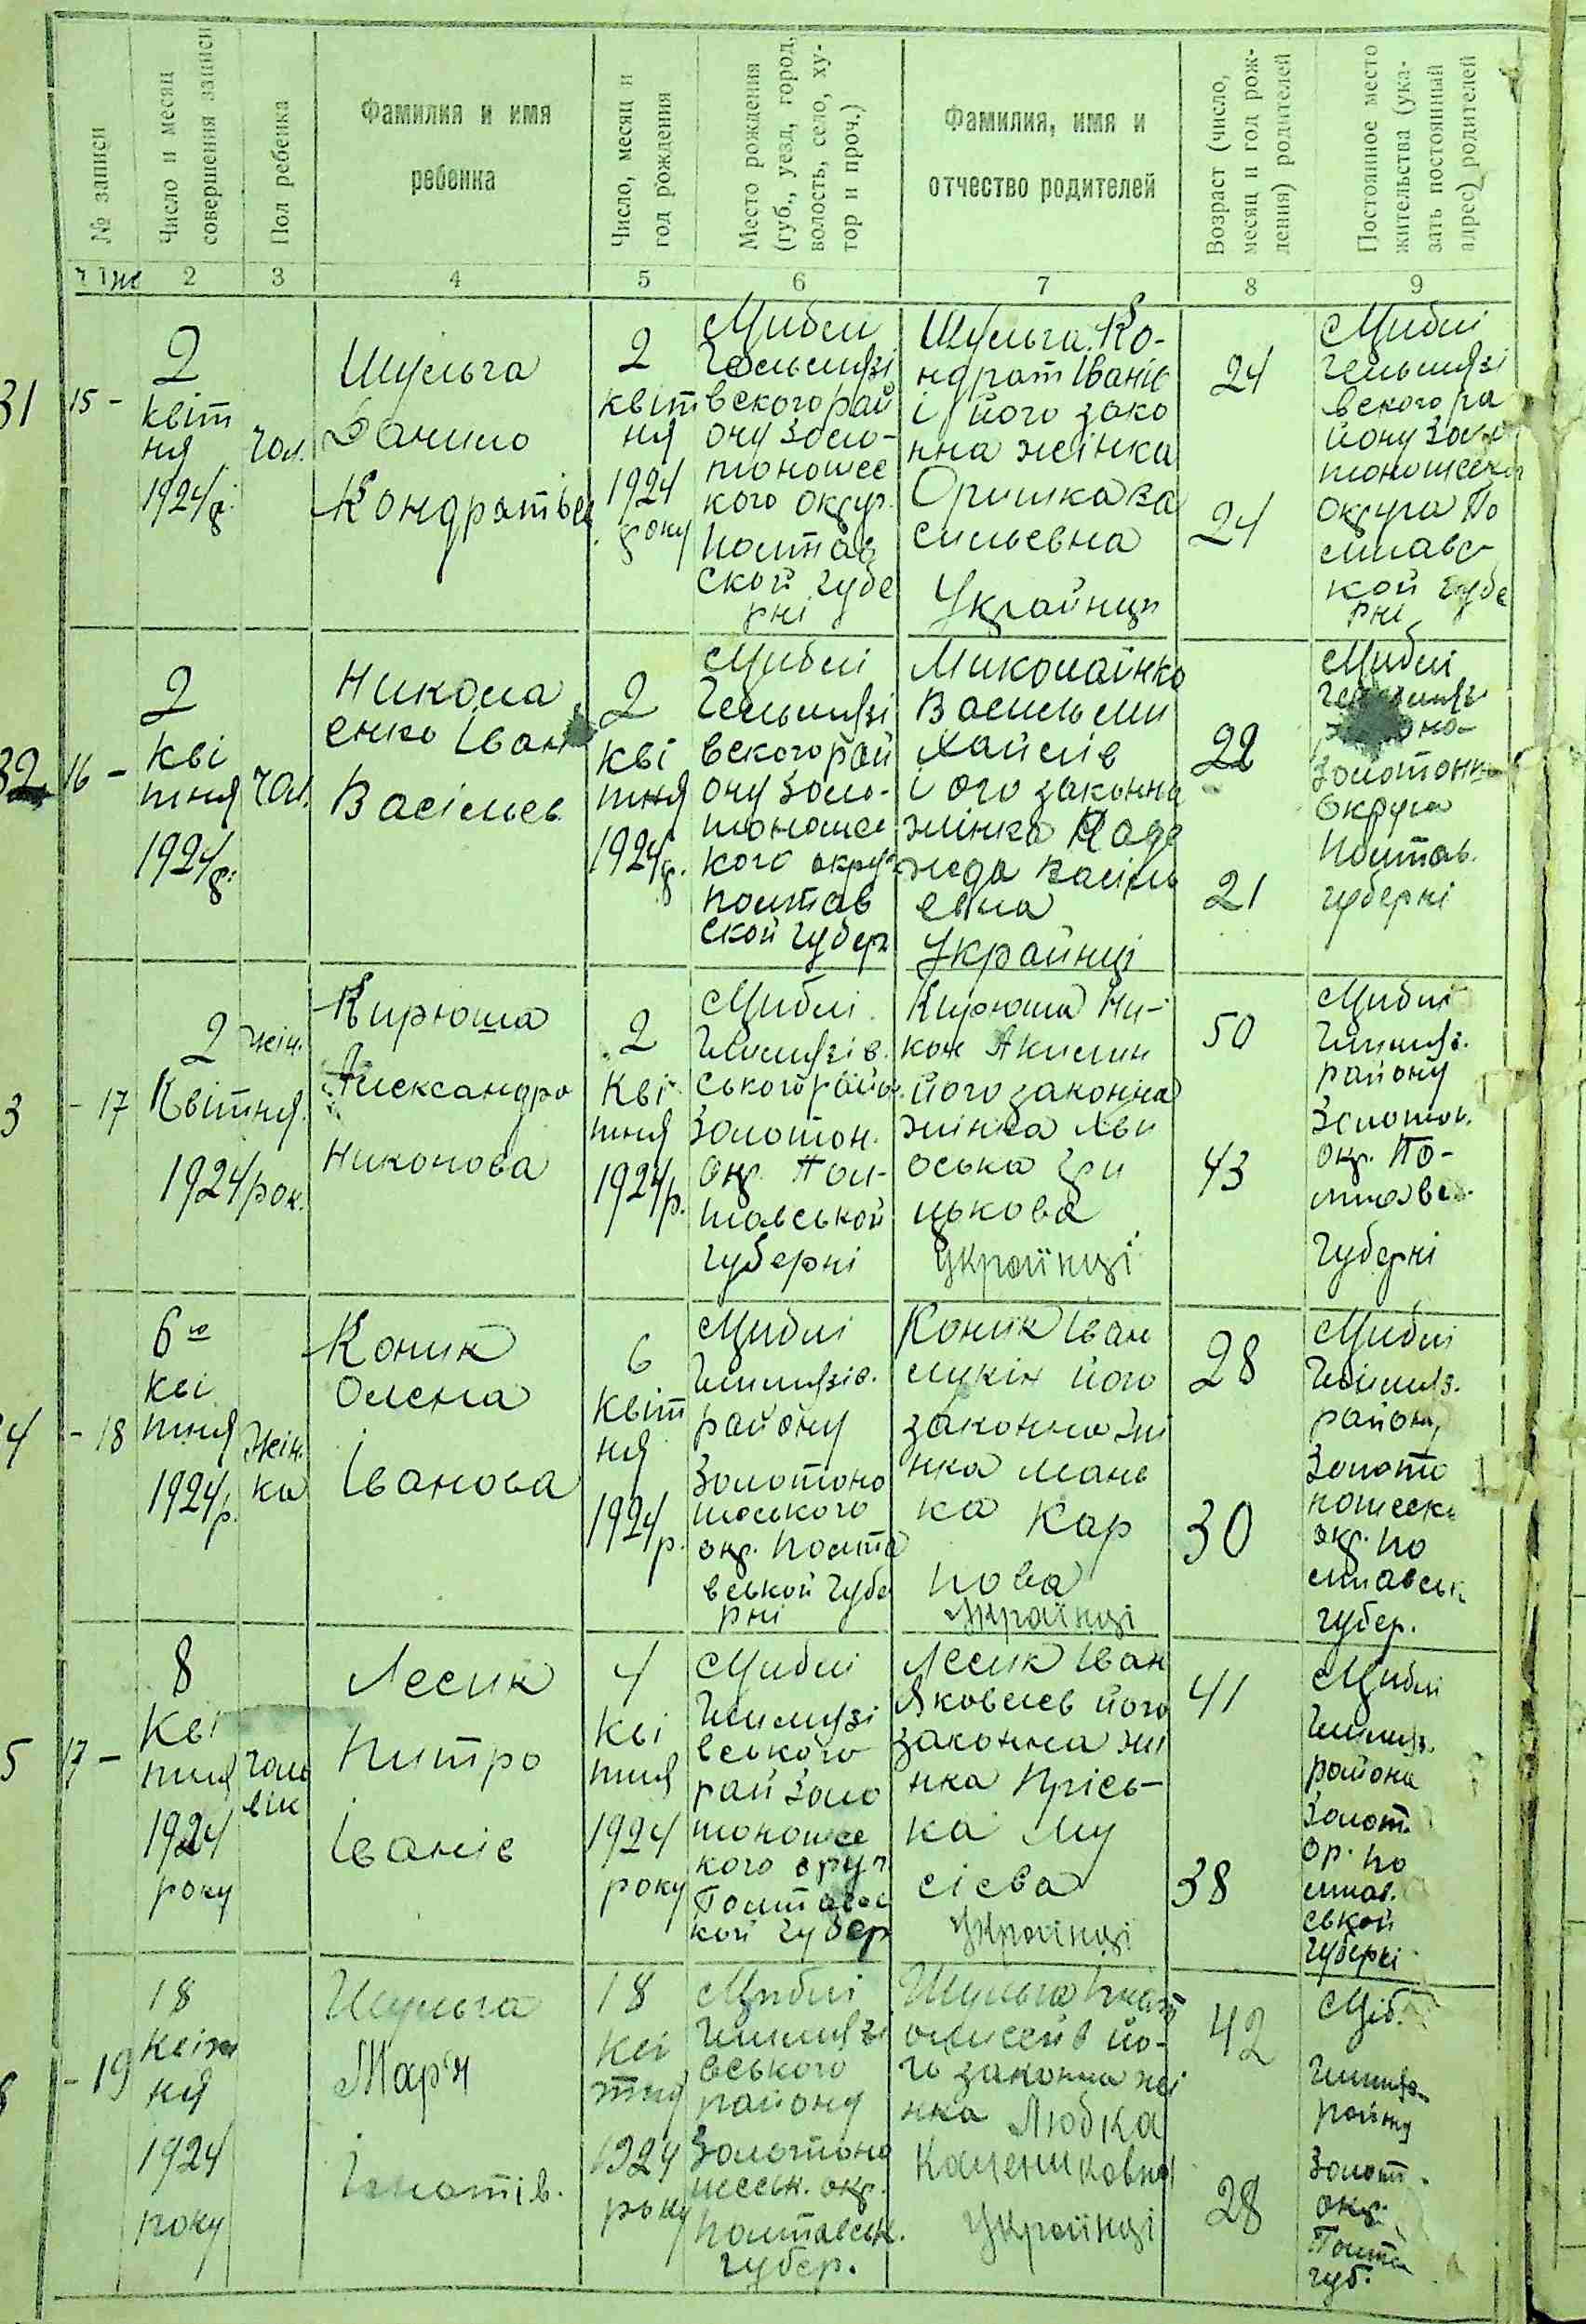 № записи
Число и месяц
совершения записи
Пол ребенка
Фамилия и имя
ребенка
Число, месяц и
год рождения
Место рождения
(губ., уезд, город,
волость, село, ху-
тор и проч.)
Фамилия, имя и
отчество родителей
Возраст (число,
месяц и год рож-
дения) родителей
Постоянное место
жительства (ука-
зать постоянный
адрес) родителей
2
3
4
5
6
7
8
9
31
15 -
2
квіт
ня
1924 р.
чол.
Шульга
Данило
Кондратьев
2
квіт
ня
1924
року
Циблі
Гельмязі
вского рай
ону Золо-
тоношес
кого округ.
Полтав
ской губе
рні
Шульга Ко-
ндрат Іванів
і його зако
нна жінка
Оришка Ва
сильевна
Украйнци
24
24
Циблі
Гельмязі
вского ра
йону Золо
тоношеск
округа По
лтавс
кой губе
рні
32
16 -
2
кві
тня
1924 р.
чол.
Никола
енко Іван
Васільев
2
кві
тня
1924 р.
Циблі
Гельмязі
вского рай
ону Золо-
тоношес
кого округ
Полтав
ской губер
Миколайнко
Василь Ми
хайлів
і ого законна
жінка Наде
жеда Васіль
евна
Украйнці
22
21
Циблі
Золотон
округа
Полтав.
губерні
3
- 17
2
Квітня.
1924 рок.
жін.
Кирюша
Александра
Никонова
2
Кві
тня
1924 р.
Циблі
Гельмязів.
ського райо.
Золотон.
окр. Пол-
тавськой
губерні
Кирюша Ни-
кон Акимин
його законна
жінка Яви
оська Гри
цькова
Українці
50
43
Циблі
Гельмяз.
району
Золотон.
окр. По-
лтавс.
губерні
4
- 18
6го
кві
тня
1924 р.
жін.
ка
Коник
Олена
Іванова
6
квіт
ня
1924 р.
Циблі
Гельмязів.
району
Золотоно
шського
окр. Полта
вськой губе
рні
Коник Іван
Лукін його
законна жі
нка Мань
ка Кар
пова
Українці
28
30
Циблі
Гельмяз.
району
Золото
ношеск
окр. По
лтавськ
губер.
5
17 -
8
Кві
тня
1924
року
чоло
вік
Лесик
Питро
Іванів
4
Кві
тня
1924
року
Циблі
Гельмязі
вського
рай Золо
тоношес
кого округ
Полтавсь
кой губер
Лесик Іван
Яковлев його
законна жі
нка Прісь-
ка Му
сієва
Українці
41
38
Циблі
Гельмяз.
района
Золот.
ор. По
лтав.
ськой
губерні
- 19
18
Квіт
ня
1924
року
Шульга
Мар'я
Ігнатів.
18
Кві
тня
1924
року
Циблі
Гельмязі
вського
району
Золотоно
шеськ. окр.
Полтавськ.
губер.
Шульга Ігнат
Олисеїв йо-
го законна жі
нка Любка
Українці
42
28
Циб.
Гельмяз.
району
Золот.
окр.
Полта
губ.